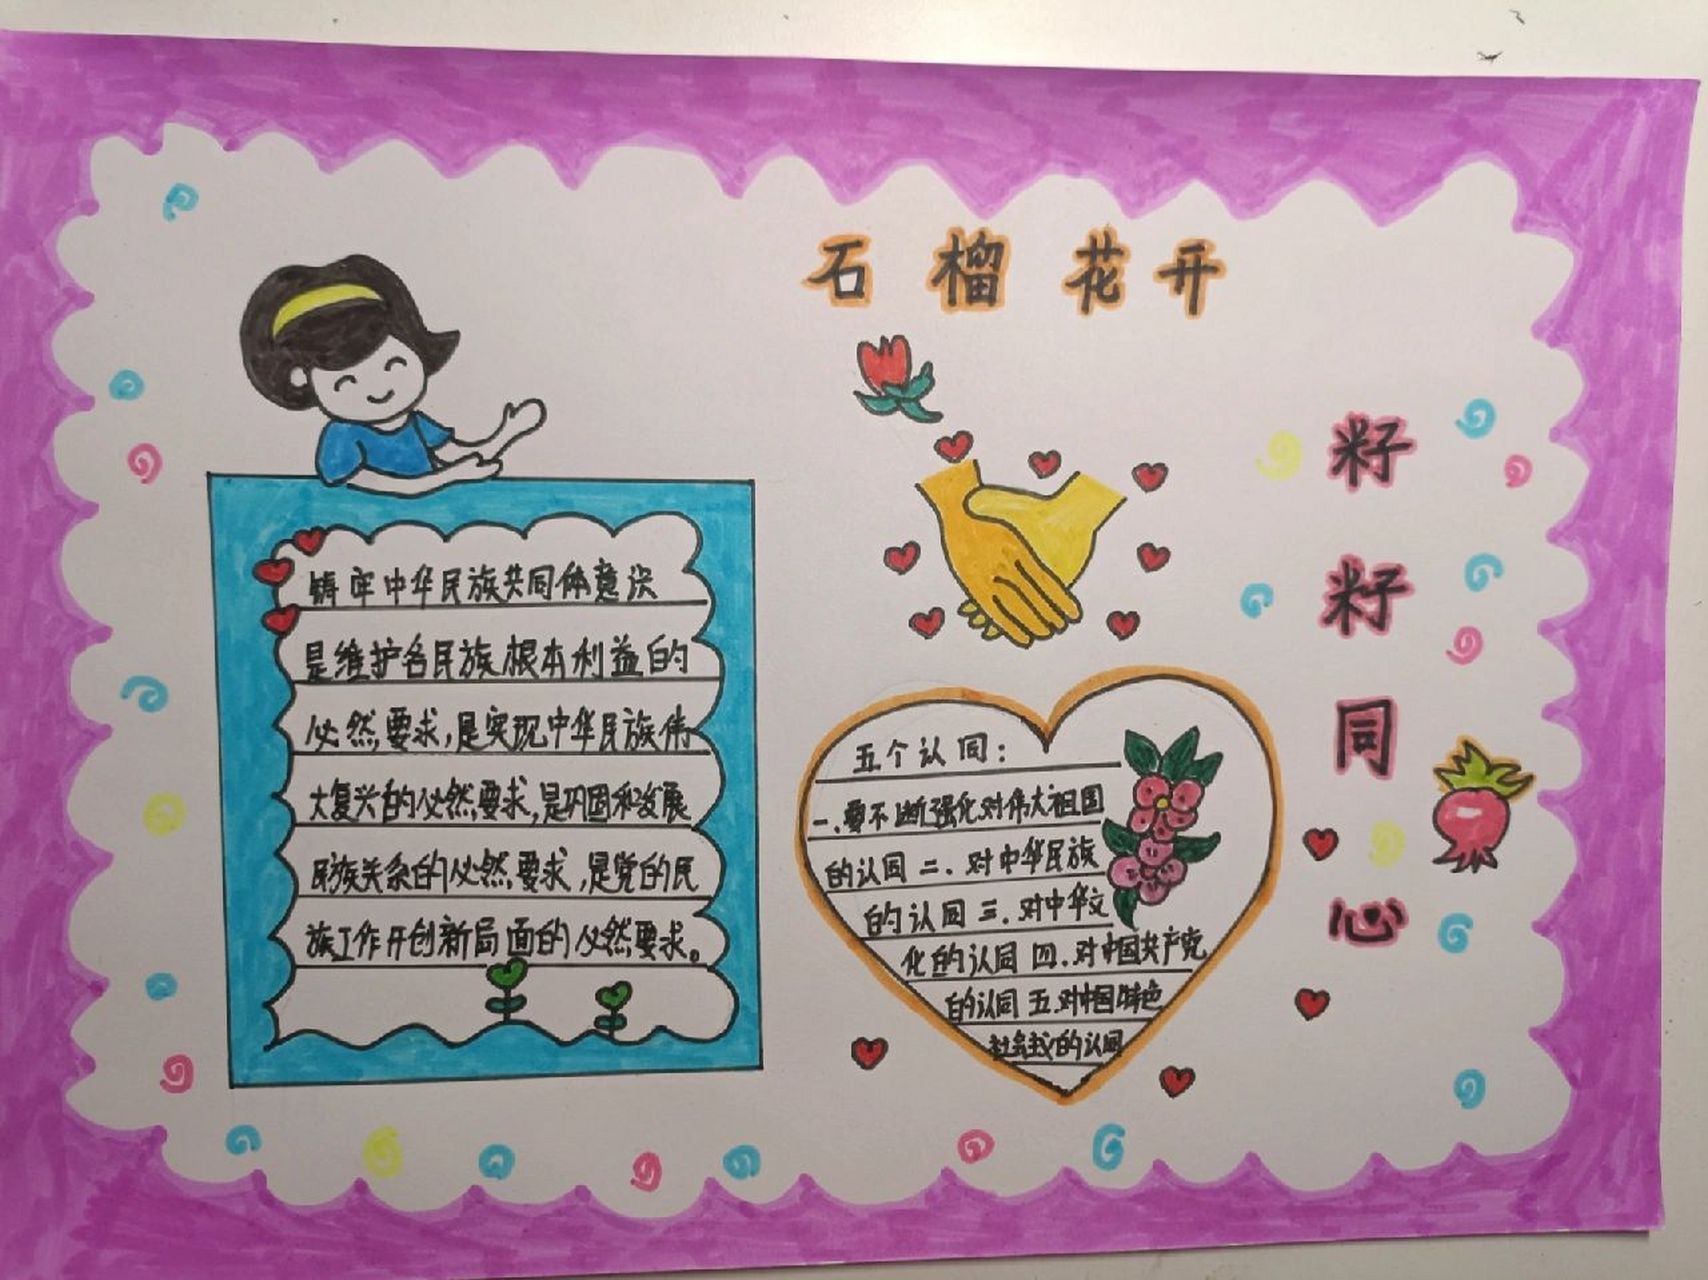 石榴花开
籽籽同心
铸牢中华民族共同体意识
是维护各民族根本利益的
必然要求,是实现中华民族伟
大复兴的必然要求,是巩固和发展
民族关系的必然要求,是党的民
族工作开创新局面的必然要求。
五个认同:
一.要不断强化对伟大祖国
的认同 二.对中华民族
的认同 三.对中华文
化的认同 四.对中国共产党
的认同 五.对中国特色
社会主义的认同